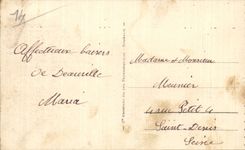 14
Affectueux baisers
de Deauville
Maria
Madame & Monsieur
Meunier
4 rue Petit 4
Saint-Denis
Seine